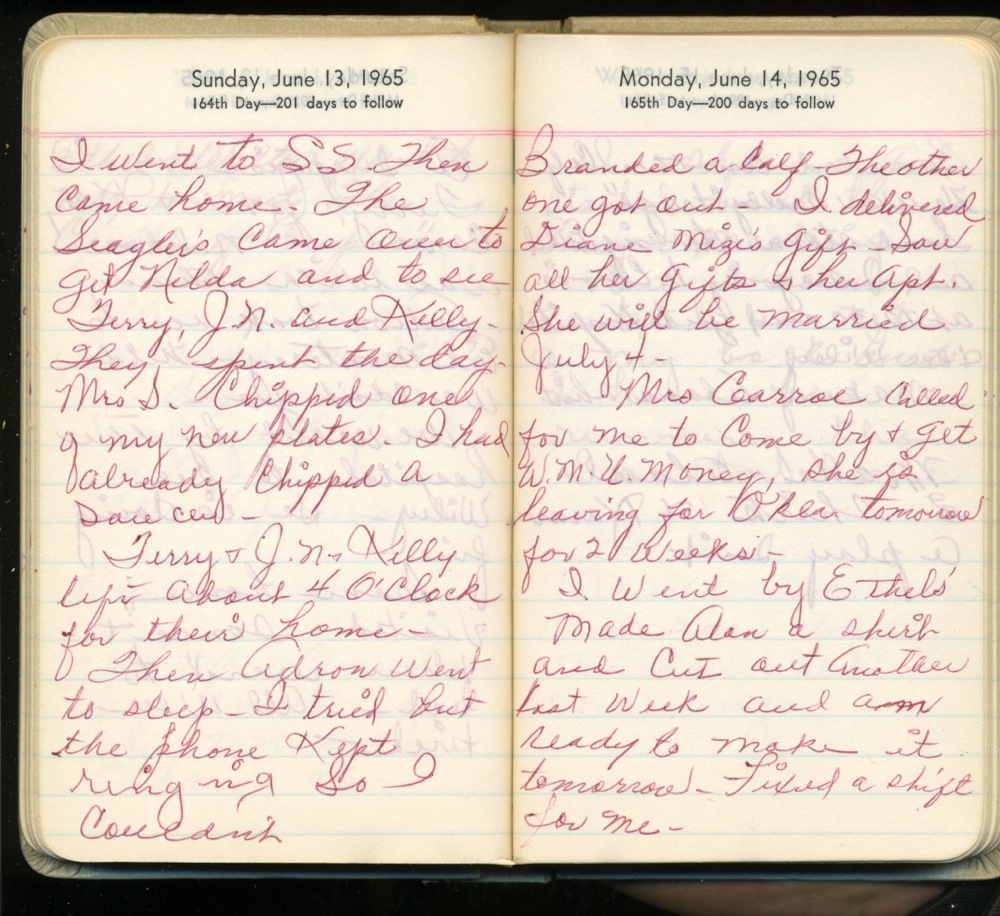 Sunday, June 13, 1965
164th Day—201 days to follow
I went to S S. Then
Came home. The
Seagler's Came Over to
get Nelda and to see
Terry, J.N. and Kelly.
They spent the day.
Mrs S. Chipped one
of my new plates. I had
already Chipped a
saucer –
Terry & J.N. & Kelly
left about 4 O'Clock
for their home –
Then Adron went
to sleep – I tried but
the phone Kept
ringing So I
Couldn't
Monday, June 14, 1965
165th Day—200 days to follow
Branded a Calf – The other
one got out – I delivered
Diane Mizi's Gift – Saw
all her Gifts & her Apt.
She will be married
July 4 –
Mrs Called
for me to Come by & Get
W.M.U. Money, she is
leaving for Okla. tomorrow
for 2 Weeks –
I Went by Ethels
Made Alan a shirt
and Cut out Another
last Week and am
ready to make it
tomorrow – Fixed a shift
for me –